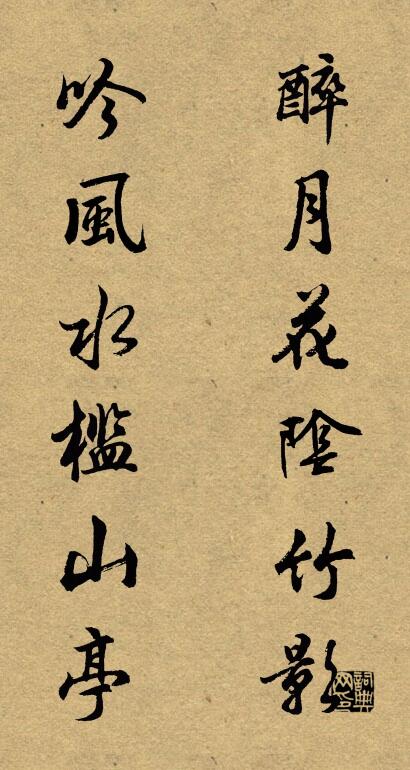 醉月花陰竹影
吟風水檻山亭
詞典網